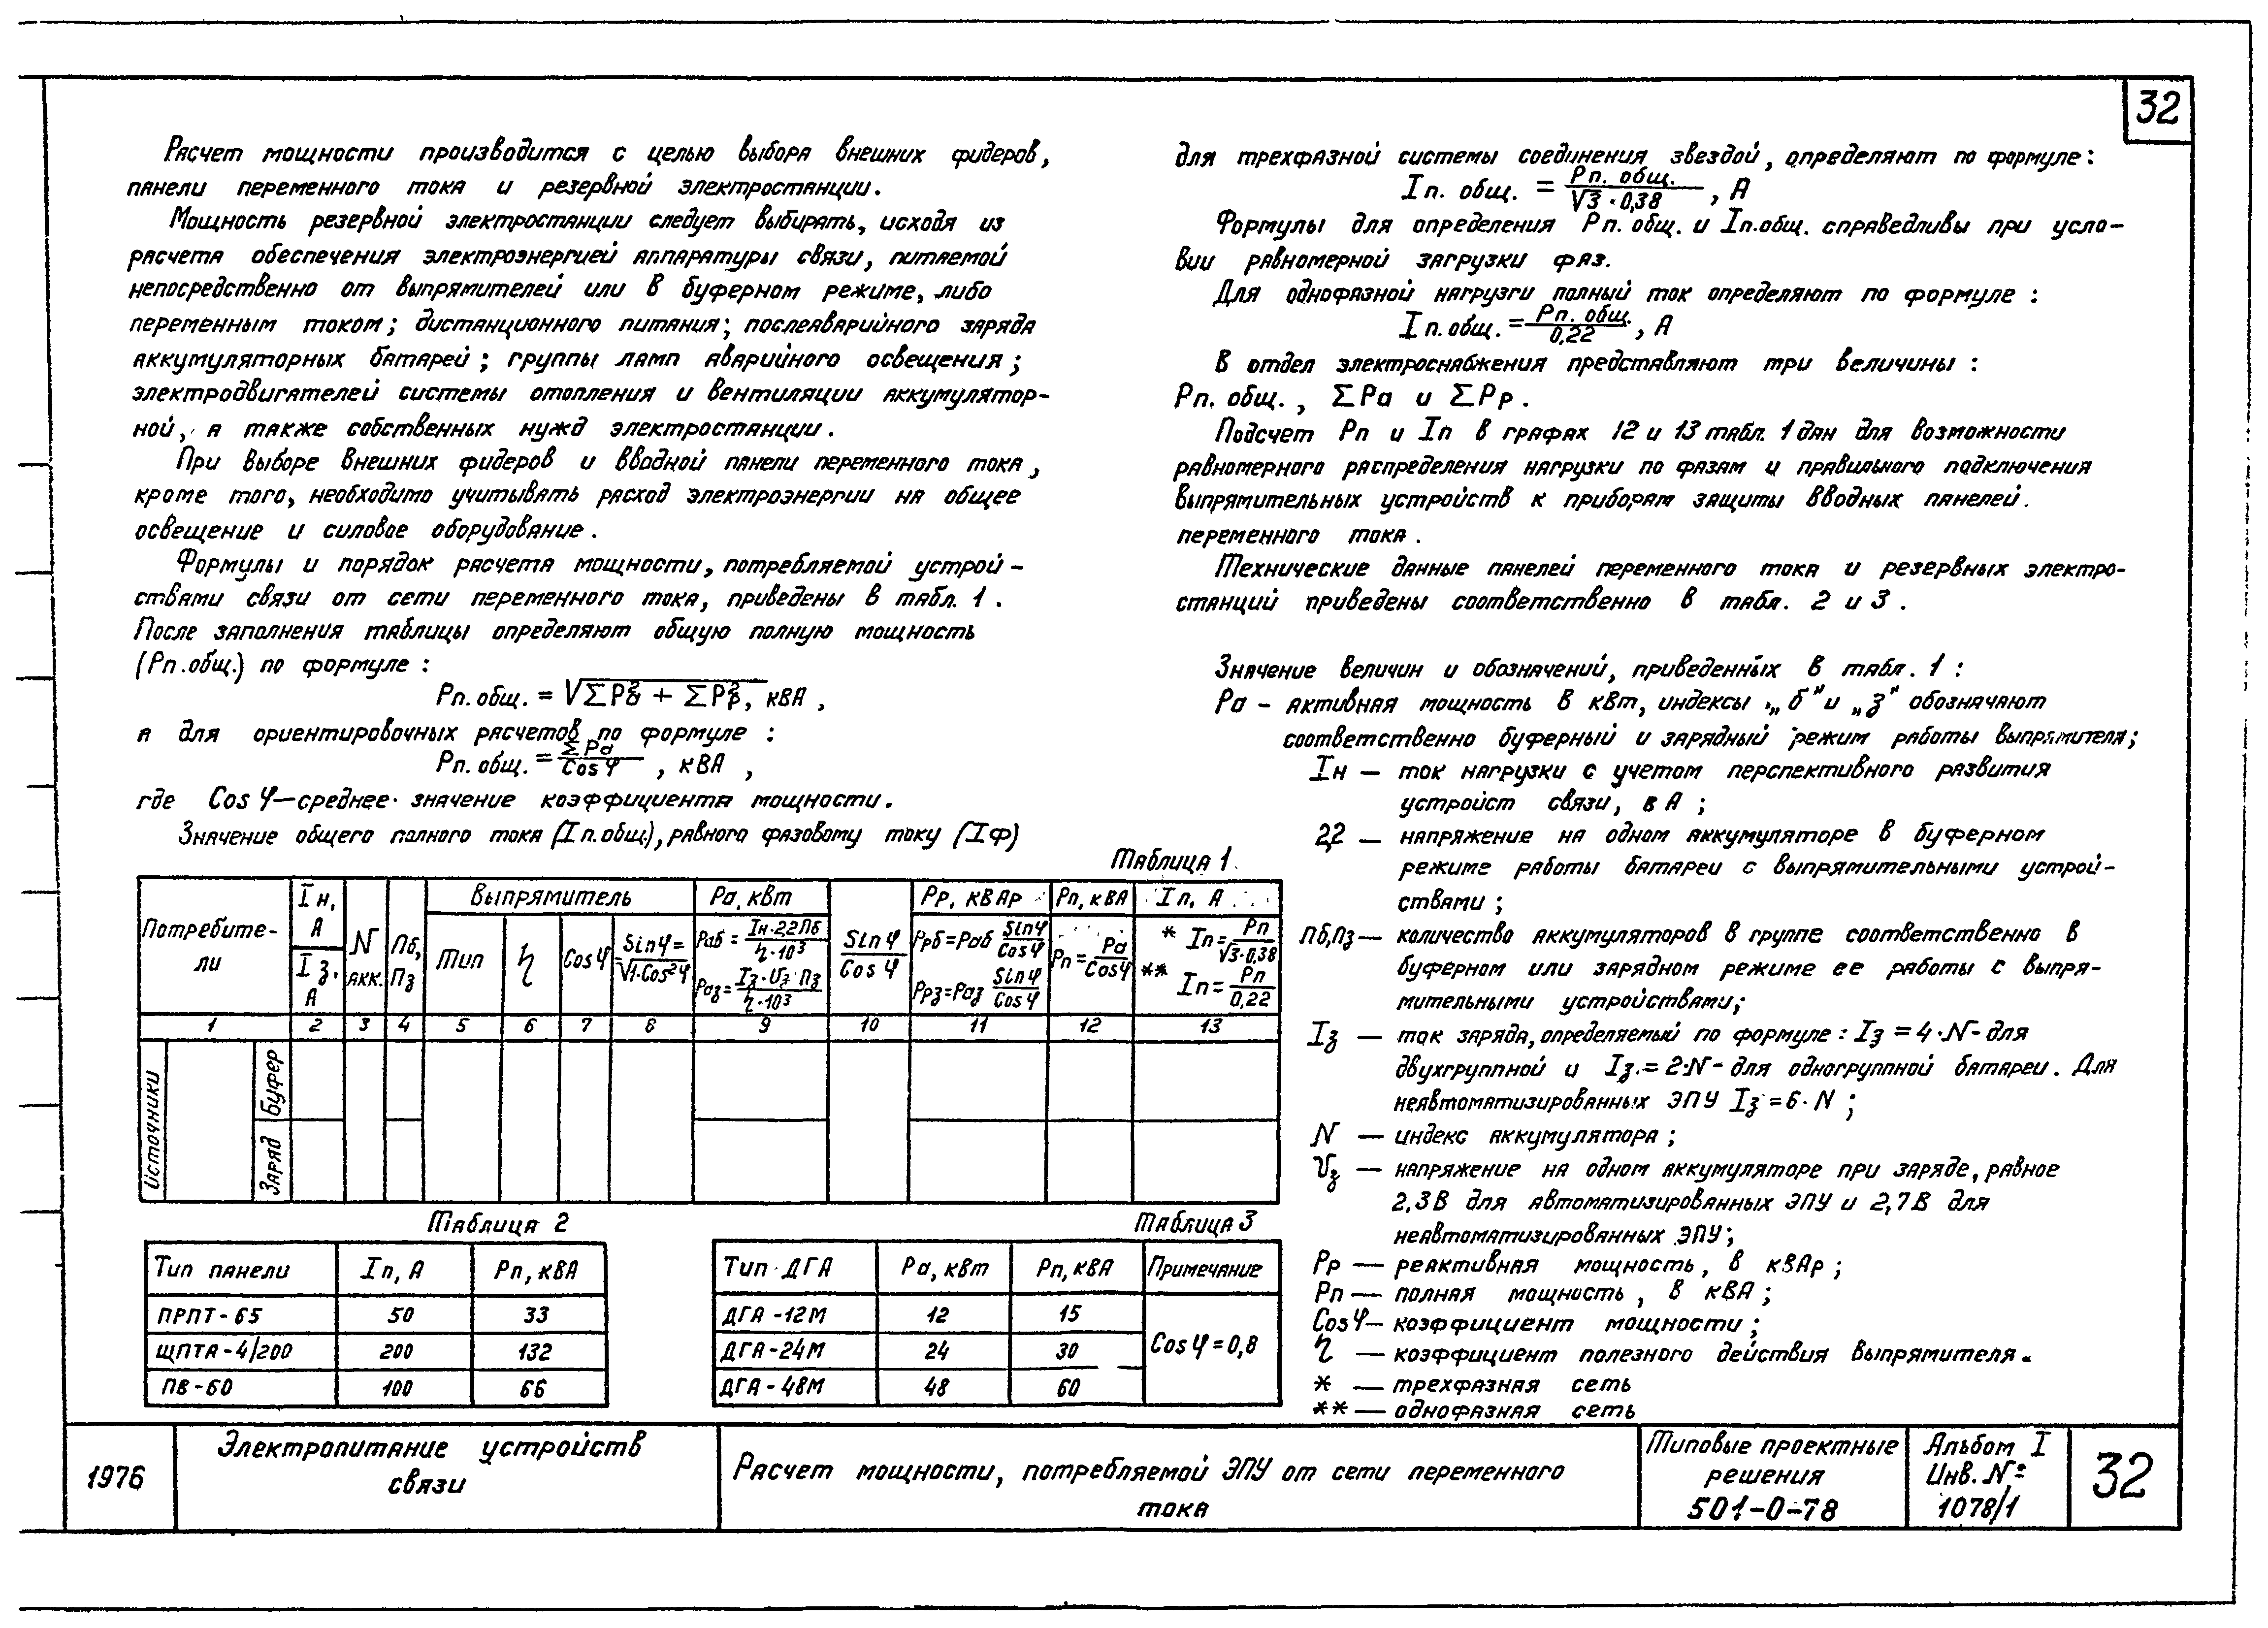 32
Расчет мощности производится с целью выбора внешних фидеров,
панели переменного тока и резервной электростанции.
Мощность резервной электростанции следует выбирать, исходя из
расчета обеспечения электроэнергией аппаратуры связи, питаемой
непосредственно от выпрямителей или в буферном режиме, либо
переменным током; дистанционного питания; послеаварийного заряда
аккумуляторных батарей; группы ламп аварийного освещения;
электродвигателей системы отопления и вентиляции аккумулятор-
ной, а также собственных нужд электростанции.
При выборе внешних фидеров и вводной панели переменного тока,
кроме того, необходимо учитывать расход электроэнергии на общее
освещение и силовое оборудование.
Формулы и порядок расчета мощности, потребляемой устрой-
ствами связи от сети переменного тока, приведены в табл. 1.
После заполнения таблицы определяют общую полную мощность
(Рп.общ.) по формуле:
Рп.общ. = √ΣРа² + ΣРр², кВА,
а для ориентировочных расчетов по формуле:
Рп.общ. = ΣРа / Cos φ, кВА,
где Cos φ — среднее значение коэффициента мощности.
Значение общего полного тока (Iп.общ.), равного фазовому току (Iф)
для трехфазной системы соединения звездой, определяют по формуле:
Iп. общ. = Рп. общ. / √3 · 0,38, А
Формулы для определения Рп. общ. и Iп.общ. справедливы при усло-
вии равномерной загрузки фаз.
Для однофазной нагрузги полный ток определяют по формуле:
Iп.общ. = Рп. общ. / 0,22, А
В отдел электроснабжения представляют три величины:
Рп. общ., ΣРа и ΣРр.
Подсчет Рп и Iп в графах 12 и 13 табл. 1 дан для возможности
равномерного распределения нагрузки по фазам и правильного подключения
выпрямительных устройств к приборам защиты вводных панелей.
переменного тока.
Технические данные панелей переменного тока и резервных электро-
станций приведены соответственно в табл. 2 и 3.
Значение величин и обозначений, приведенных в табл. 1:
Ра - активная мощность в кВт, индексы „б" и „з" обозначают
соответственно буферный и зарядный режим работы выпрямителя;
Iн — ток нагрузки с учетом перспективного развития
устройст связи, в А;
2,2 — напряжение на одном аккумуляторе в буферном
режиме работы батареи с выпрямительными устрой-
ствами;
Пб,Пз — количество аккумуляторов в группе соответственно в
буферном или зарядном режиме ее работы с выпря-
мительными устройствами;
Iз — ток заряда, определяемый по формуле: Iз = 4·N - для
двухгруппной и Iз = 2·N - для одногруппной батареи. Для
неавтоматизированных ЭПУ Iз = 6·N;
N — индекс аккумулятора;
Uз — напряжение на одном аккумуляторе при заряде, равное
2,3В для автоматизированных ЭПУ и 2,7В для
неавтоматизированных ЭПУ;
Рр — реактивная мощность, в кВАр;
Рп — полная мощность, в кВА;
Cos φ — коэффициент мощности;
η — коэффициент полезного действия выпрямителя.
* — трехфазная сеть
** — однофазная сеть
Таблица 1
Потребите-
ли
Iн, А
Iз, А
N акк.
Пб, Пз
Выпрямитель
Тип
η
Cos φ
Sin φ = √1-Cos²φ
Ра, кВт
Раб = Iн·2,2Пб / η·10³
Раз = Iз·Uз·Пз / η·10³
Sin φ / Cos φ
Рр, кВАр
Ррб = Раб Sin φ / Cos φ
Ррз = Раз Sin φ / Cos φ
Рп, кВА
Рп = Ра / Cos φ
Iп, А
* Iп = Рп / √3·0,38
** Iп = Рп / 0,22
1 2 3 4 5 6 7 8 9 10 11 12 13
Источники
Буфер
Заряд
Таблица 2
Тип панели Iп, А Рп, кВА
ПРПТ-65 50 33
ЩПТА-4/200 200 132
ПВ-60 100 66
Таблица 3
Тип ДГА Ра, кВт Рп, кВА Примечание
ДГА-12М 12 15
ДГА-24М 24 30
ДГА-48М 48 60
Cos φ = 0,8
1976
Электропитание устройств
связи
Расчет мощности, потребляемой ЭПУ от сети переменного
тока
Типовые проектные
решения
501-0-78
Альбом I
Инв. №
1078/1
32